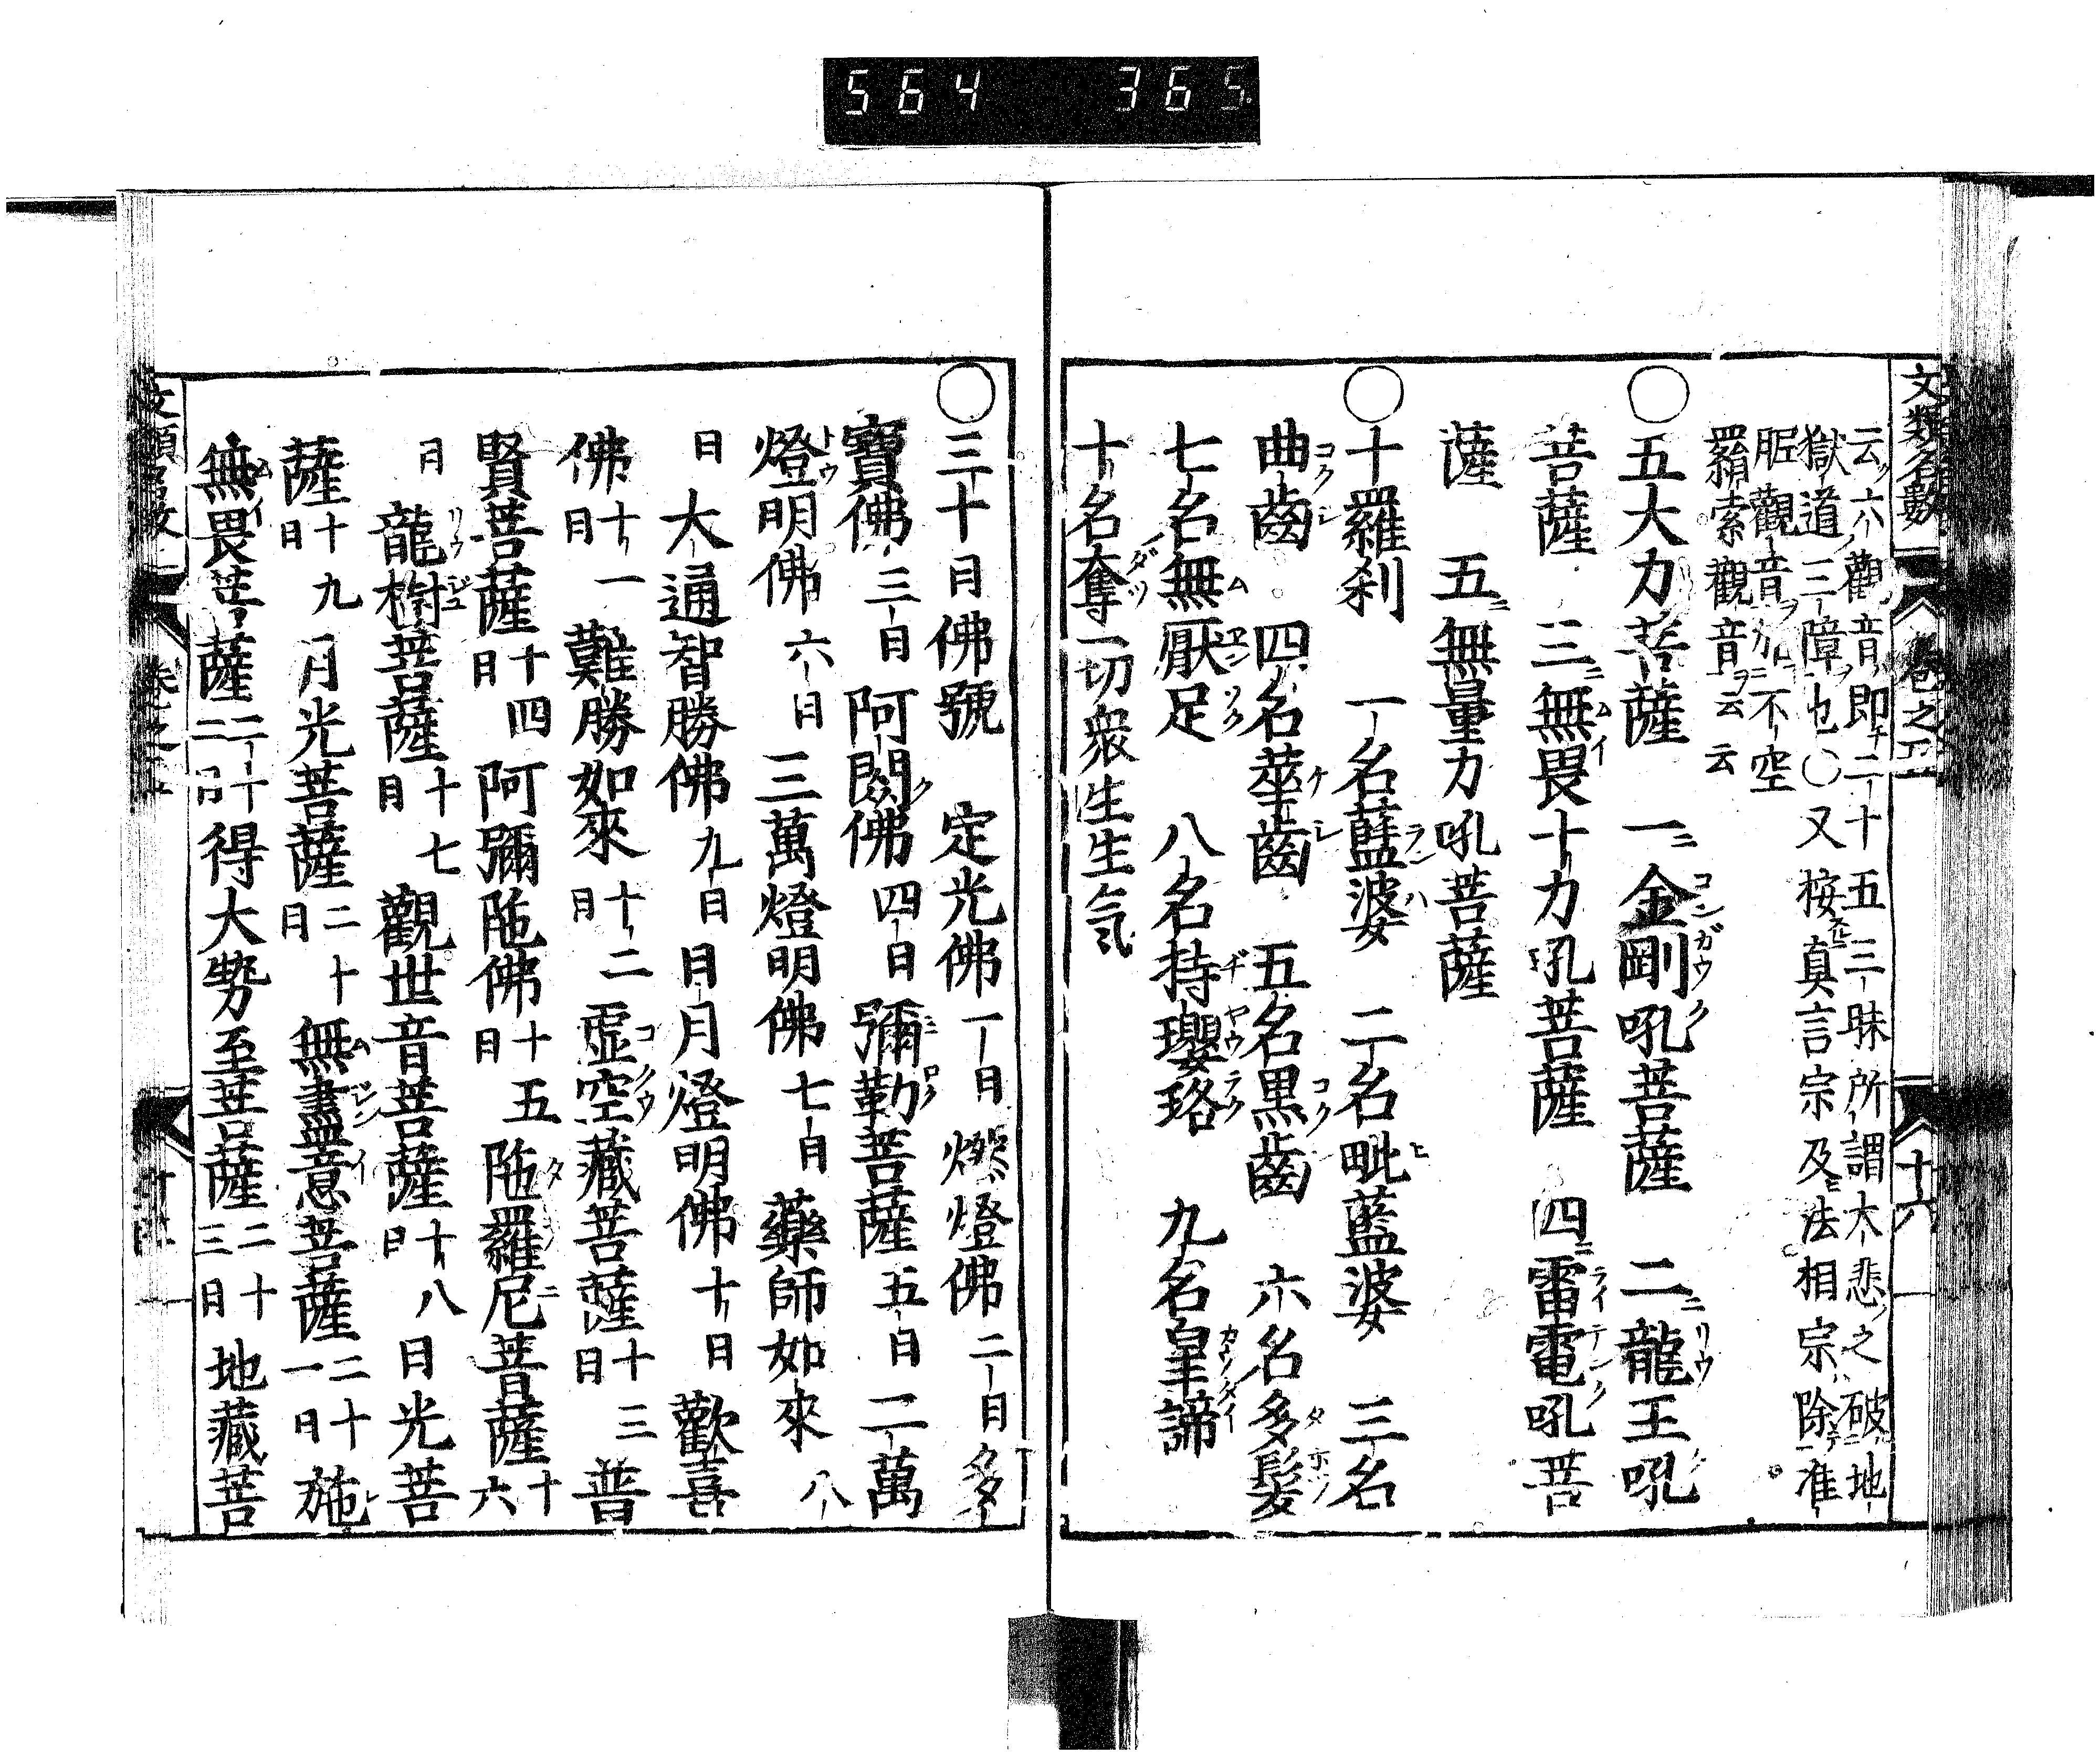 564 365
文類名數 卷之五 十六
云六觀音即二十五三昧所謂大悲之破地
獄道三障也○又按真言宗及法相宗除准
胝觀音加不空
羂索觀音云云
○五大力菩薩 一金剛吼菩薩 二龍王吼
菩薩 三無畏十力吼菩薩 四雷電吼菩
薩 五無量力吼菩薩
○十羅刹 一名藍婆 二名毗藍婆 三名
曲齒 四名華齒 五名黒齒 六名多髮
七名無厭足 八名持瓔珞 九名皇諦
十名奪一切衆生生氣
○三十日佛號 定光佛一日 燃燈佛二日 多
寶佛三日 阿閦佛四日 彌勒菩薩五日 二萬
燈明佛六日 三萬燈明佛七日 藥師如來八
日 大通智勝佛九日 日月燈明佛十日 歡喜
佛十一日 難勝如來十二日 虚空藏菩薩十三日 普
賢菩薩十四日 阿彌陁佛十五日 陁羅尼菩薩十六
日 龍樹菩薩十七日 觀世音菩薩十八日 日光菩
薩十九日 月光菩薩二十日 無盡意菩薩二十一日 施
無畏菩薩二十二日 得大勢至菩薩二十三日 地藏菩